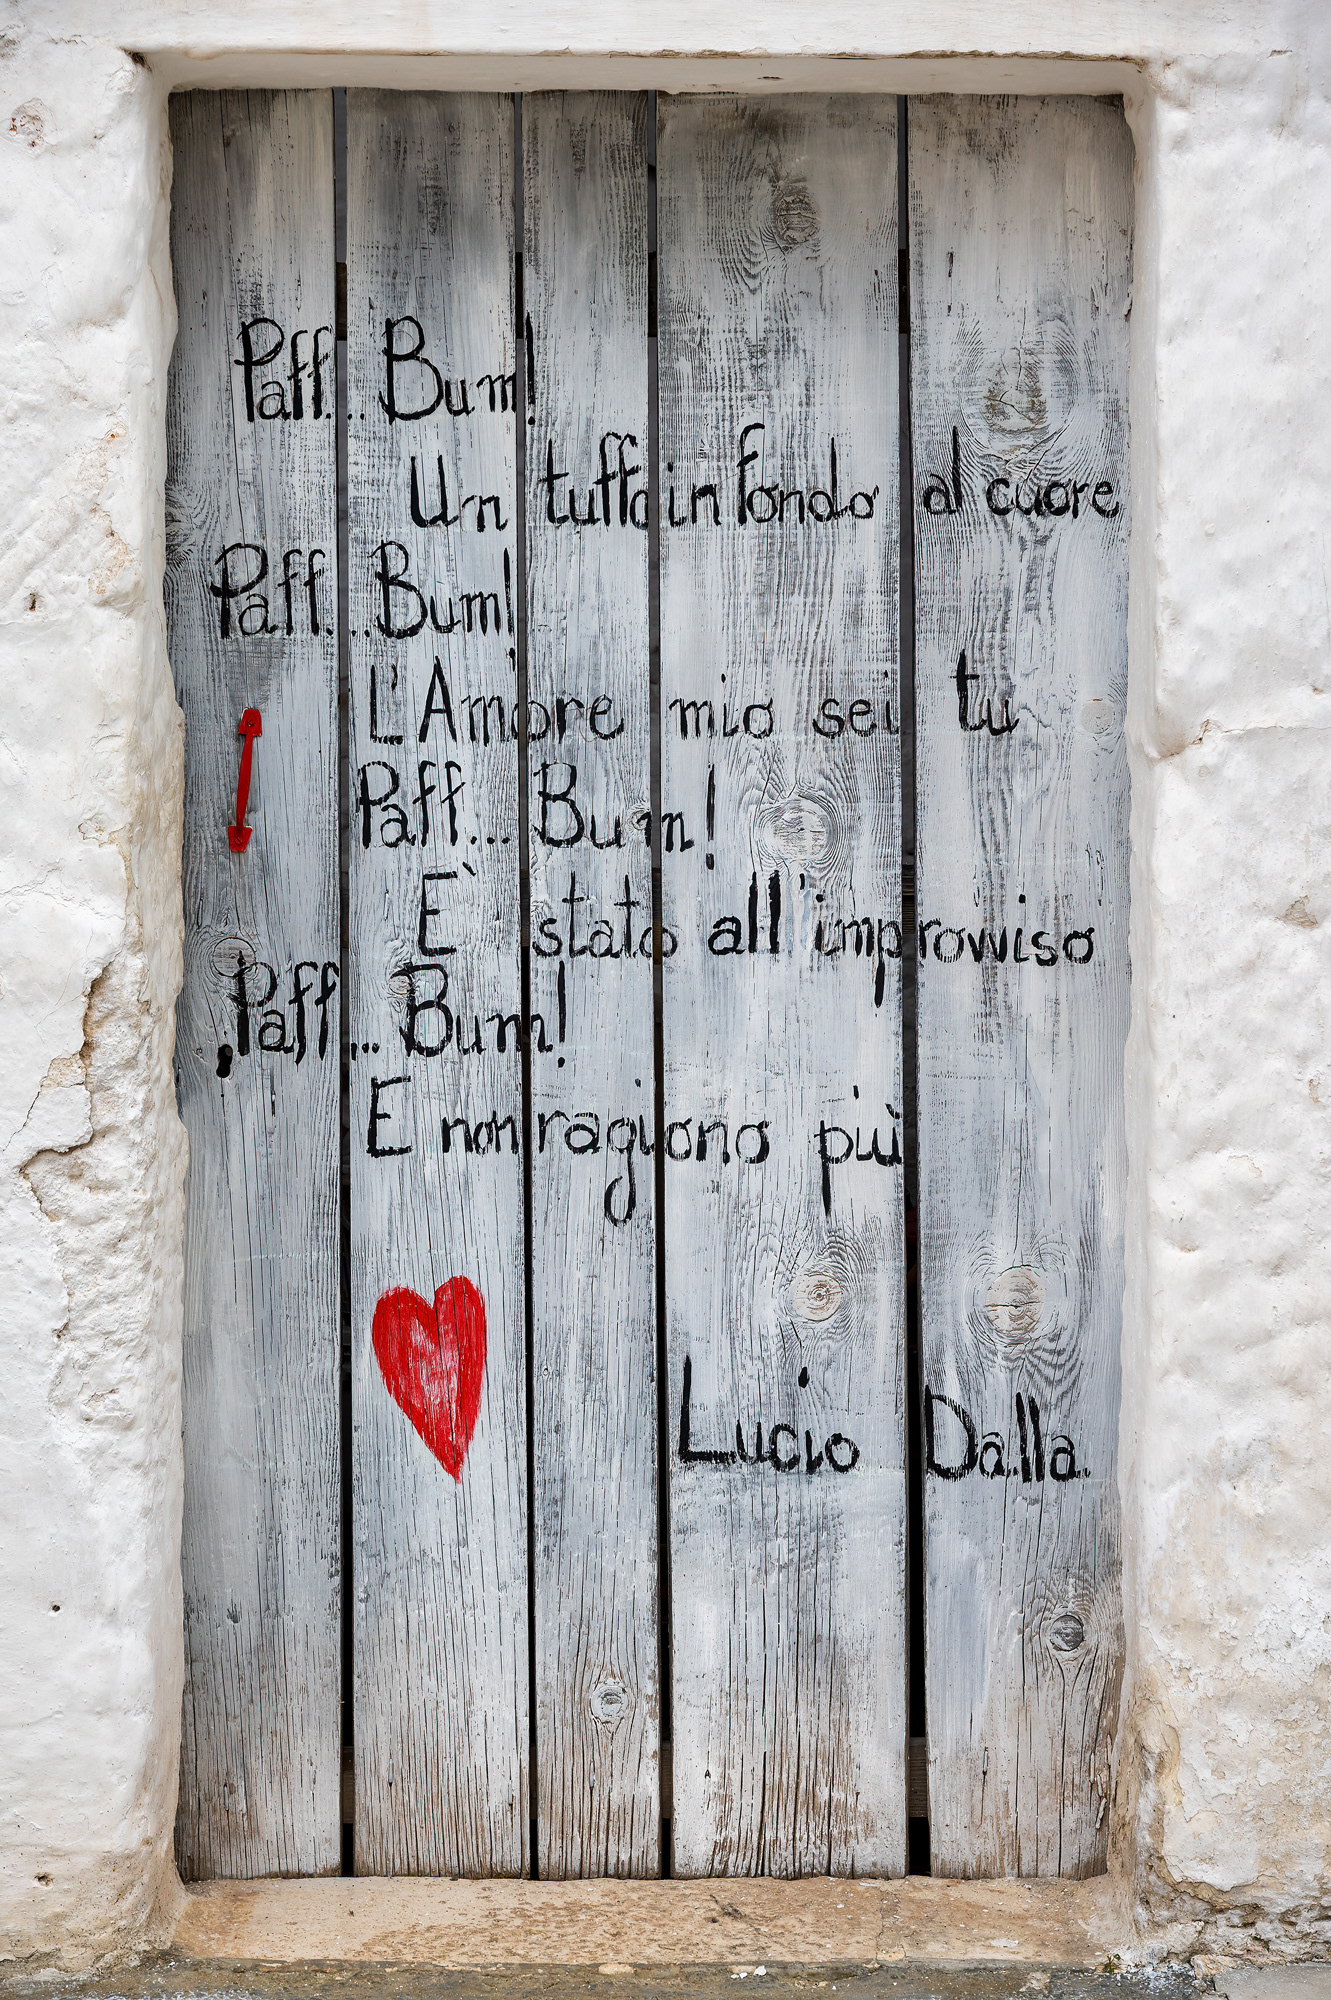 Paff... Bum!
Un tuffo in fondo al cuore
Paff... Bum!
L'Amore mio sei tu
Paff... Bum!
E' stato all'improvviso
Paff... Bum!
E non ragiono più
Lucio Dalla